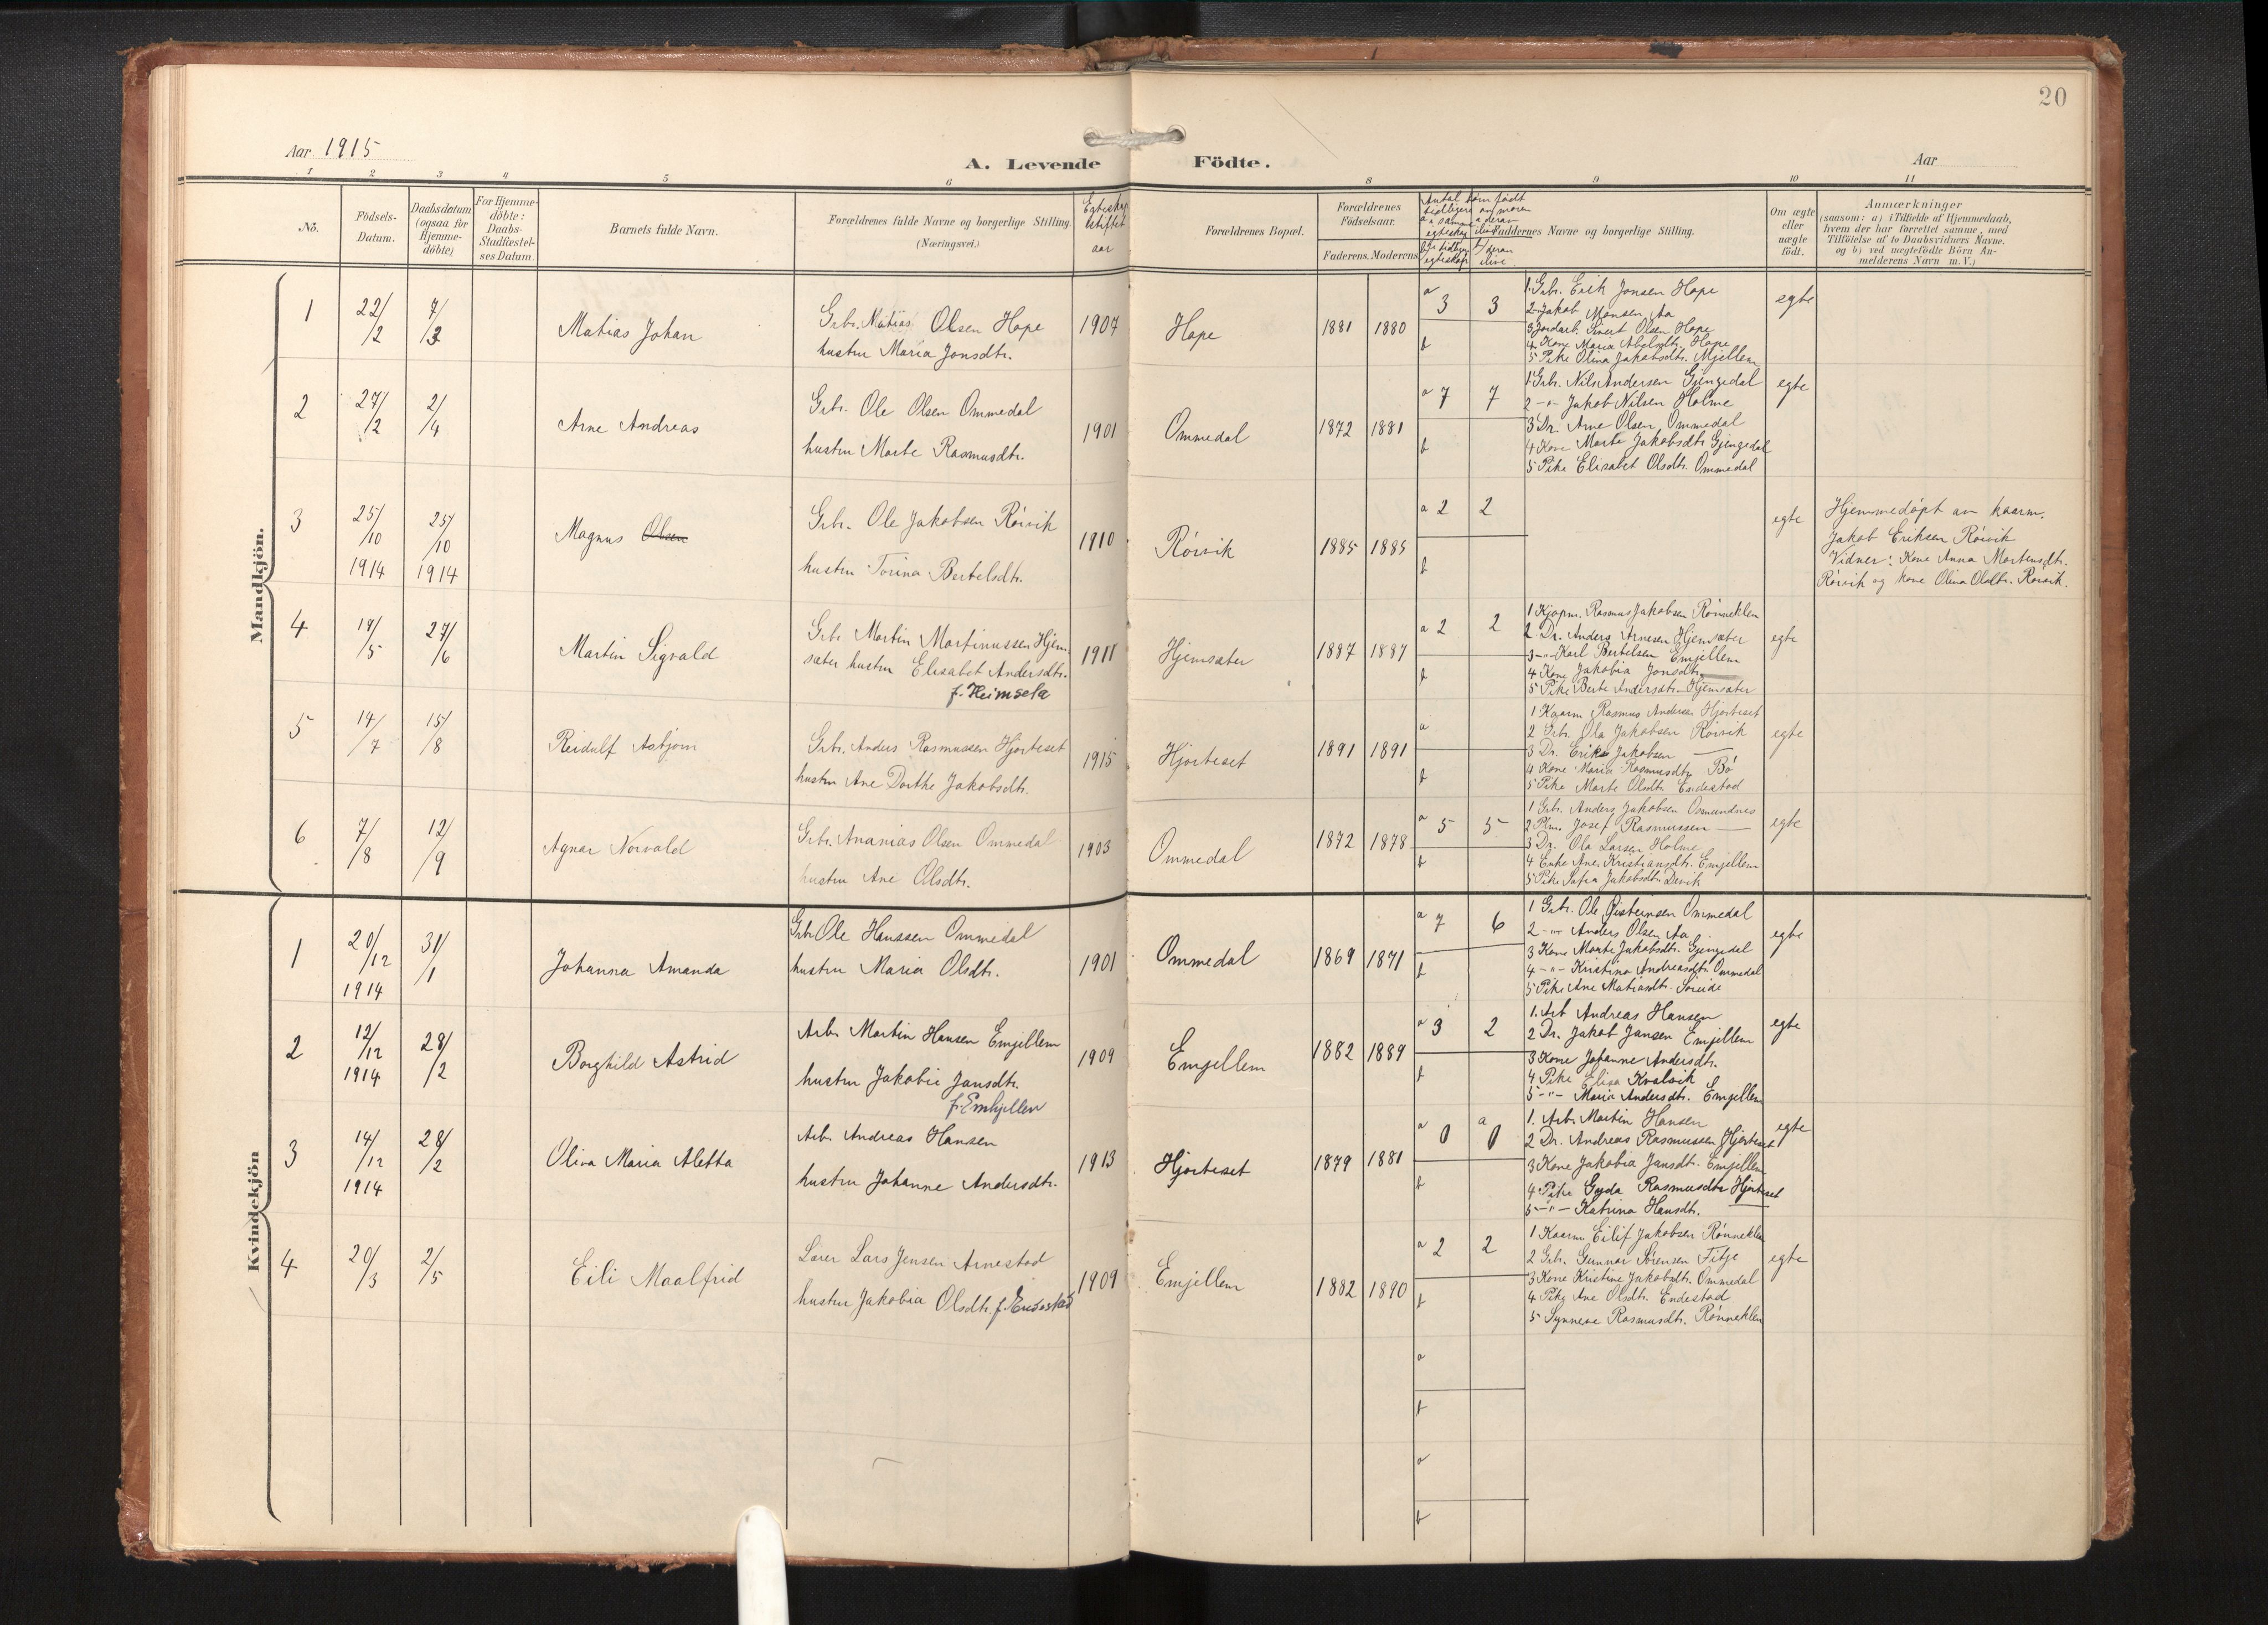 20
Aar 1915
A. Levende Födte.
Aar
1 2 3 4 5 6 8 9 10 11
Nö.
Födsels-
Datum.
Daabsdatum
(ogsaa for
Hjemme-
döbte)
For Hjemme-
döbte:
Daabs-
Stadfæstel-
ses Datum.
Barnets fulde Navn.
Forældrenes fulde Navne og borgerlige Stilling.
(Næringsvei.)
Egteskap
stiftet
aar
Forældrenes Bopæl.
Forældrenes
Födselsaar.
Faderens. Moderens.
Antal börn födt
tidligere av moren
Faddernes Navne og borgerlige Stilling.
Om ægte
eller
uægte
födt.
Anmærkninger
(saasom: a) i Tilfælde af Hjemmedaab,
hvem der har forrettet samme, med
Tilföielse af to Daabsvidners Navne.
og b) ved uægtefödte Börn An-
melderens Navn m. V.)
Mandkjön.
1 22/2 7/3 Matias Johan
Grbr. Matias Olsen Hope
hustru Maria Jonsdtr.
1907 Hope 1881 1880 a 3 3 b
1. Grbr. Erik Jonsen Hope
2 Jakob Monsen Aa
3 Jordarb. Sivert Olsen Hope
4. Kone Maria Abelsdtr. Hope
5 Pike Olina Jakobsdtr. Mjellem
egte
2 27/2 2/4 Arne Andreas
Grbr. Ole Olsen Ommedal
hustru Marte Rasmusdtr.
1901 Ommedal 1872 1881 a 7 7 b
1 Grbr. Nils Andersen Gjengedal
2 -"- Jakob Nilsen Holme
3 Dr. Arne Olsen Ommedal
4 Kone Marte Jakobsdtr. Gjengedal
5 Pike Elisabet Olsdtr. Ommedal
egte
3 25/10 1914 25/10 1914 Magnus Olsen
Grbr. Ole Jakobsen Róisvik
hustru Torina Bertelsdtr.
1910 Róisvik 1885 1885 a 2 2 b
egte
Hjemmedöpt av kaarm.
Jakob Eriksen Róisvik
Vidner: Kone Anna Mortensdtr.
Róisvik og kone Olina Olsdtr. Róisvik.
4 18/5 27/6 Martin Sigvald
Grbr Martin Martinussen Hjem-
sæter hustru Elisabet Andersdtr.
f. Heimseta
1911 Hjemsæter 1887 1887 a 2 2 b
1 Kjöpm. Rasmus Jakobsen Rónneklen
2 Dr. Anders Arnesen Hjemsæter
3 -"- Karl Bertelsen Emjellem
4 Kone Jakobia Jonsdtr. —
5 Pike Berte Andersdtr. Hjemsæter
egte
5 14/7 15/8 Reidulf Asbjörn
Grbr. Anders Rasmussen Hjorteset
hustru Ane Dorthe Jakobsdtr.
1915 Hjorteset 1891 1891 a b
1 Kaarm Rasmus Andersen Hjorteset
2 Grbr. Ola Jakobsen Róisvik
3 Dr. Erik Jakobsen —
4 Kone Maria Rasmusdtr. Bö
5 Pike Marte Olsdtr. Endestad
egte
6 7/8 12/9 Agnar Norvald
Grbr. Ananias Olsen Ommedal
hustru Ane Olsdtr.
1903 Ommedal 1872 1878 a 5 5 b
1 Grbr. Anders Jakobsen Osmundnes
2 Plm. Josef Rasmussen —
3 Dr. Ola Larsen Holme
4 Enke Ane Kristiansdtr. Emjellem
5 Pike Sofia Jakobsdtr. Devik
egte
Kvindekjön
1 20/12 1914 31/1 Johanna Amanda
Grbr Ole Hanssen Ommedal
hustru Maria Olsdtr.
1901 Ommedal 1869 1871 a 7 6 b
1 Grbr. Ole Eisteinsen Ommedal
2 -"- Anders Olsen Aa
3 Kone Marte Jakobsdtr. Gjengedal
4 -"- Kristina Andreasdtr. Ommedal
5 Pike Ane Matiasdtr. Söreide
egte
2 12/12 1914 28/2 Borghild Astrid
Arb. Martin Hansen Emjellem
hustru Jakobia Jansdtr.
f. Emhjellen
1909 Emjellem 1882 1889 a 3 2 b
1. Arb Andreas Hansen
2 Dr. Jakob Jansen Emjellem
3 Kone Johanne Andersdtr.
4 Pike Elisa Kvalvik
5 -"- Maria Andersdtr. Emjellem
egte
3 14/12 1914 28/2 Oliva Maria Aletta
Arb. Andreas Hansen
hustru Johanne Andersdtr.
1913 Hjorteset 1879 1881 a 0 a 0 b
1. Arb. Martin Hansen
2 Dr. Andreas Rasmussen Hjorteset
3 Kone Jakobia Jansdtr. Emjellem
4 Pike Gyda Rasmusdtr. Hjorteset
5 -"- Katrina Hansdtr. —
egte
4 20/3 2/5 Eili Maalfrid
Lærer Lars Jensen Arnestad
hustru Jakobia Olsdtr. f. Endestad
1909 Emjellem 1882 1890 a 2 2 b
1 Kaarm Eilif Jakobsen Rónneklen
2 Grb. Gunnar Sörensen Fitje
3 Kone Kristine Jakobsdtr. Ommedal
4 Pike Ane Olsdtr. Endestad
5 Synneve Rasmusdtr. Rónneklen
egte
a
b
a
b